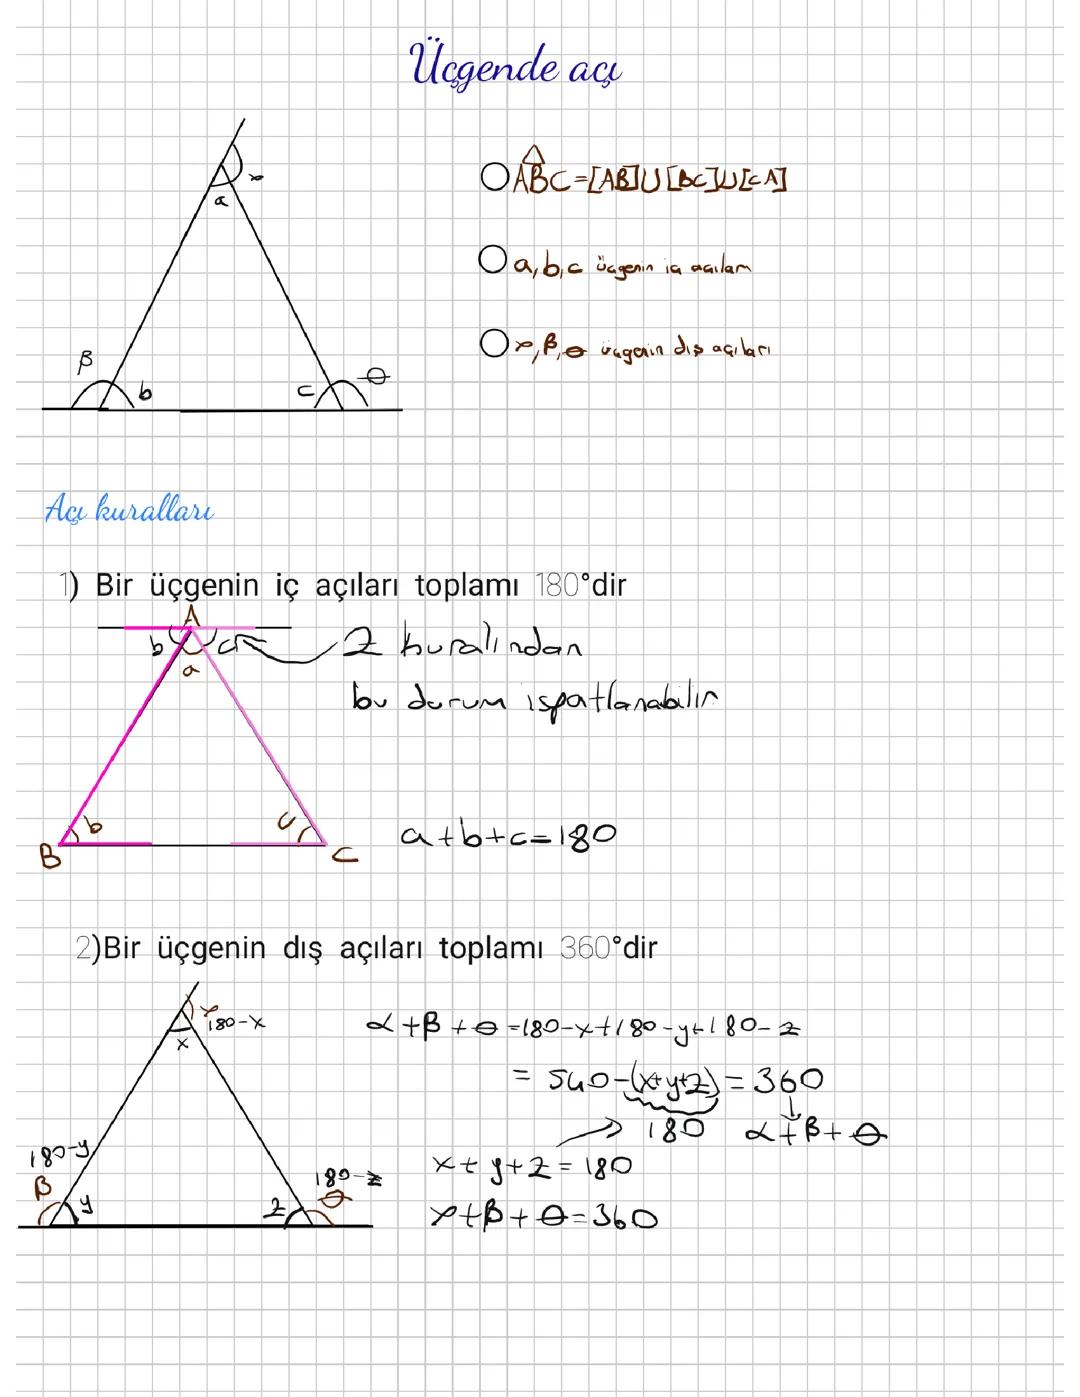 Üçgende açı
α
a
β
b
c
θ
ABC=[AB]U[BC]U[CA]
a,b,c üçgenin iç açıları
α,β,θ üçgenin dış açıları
Açı kuralları
1) Bir üçgenin iç açıları toplamı 180°dir
A
b
a
c
Z kuralından
bu durum ispatlanabilir
b
c
B
C
a+b+c=180
2)Bir üçgenin dış açıları toplamı 360°dir
α
180-x
x
α+β+θ=180-x+180-y+180-z
= 540-(x+y+z)=360
180 α+β+θ
180-y
β
y
z
180-z
θ
x+y+z=180
α+β+θ=360